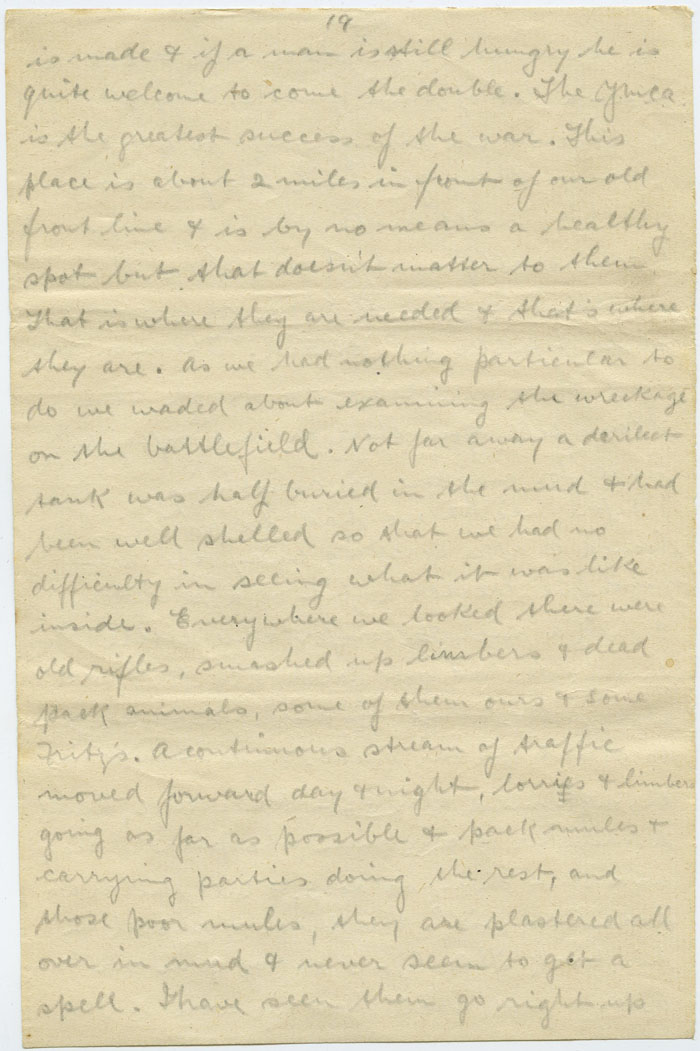 19
is made & if a man is still hungry he is
quite welcome to come the double. The Ymca
is the greatest success of the war. This
place is about 2 miles in front of our old
front line & is by no means a healthy
spot but that doesn't matter to them.
That is where they are needed & that's where
they are. As we had nothing particular to
do we waded about examining the wreckage
on the battlefield. Not far away a derilect
tank was half buried in the mud & had
been well shelled so that we had no
difficulty in seeing what it was like
inside. Everywhere we looked there were
old rifles, smashed up limbers & dead
pack animals, some of them ours & some
Fritz's. A continuous stream of traffic
moved forward day & night, lorries & limbers
going as far as possible & pack mules &
carrying parties doing the rest, and
those poor mules, they are plastered all
over in mud & never seem to get a
spell. I have seen them go right up